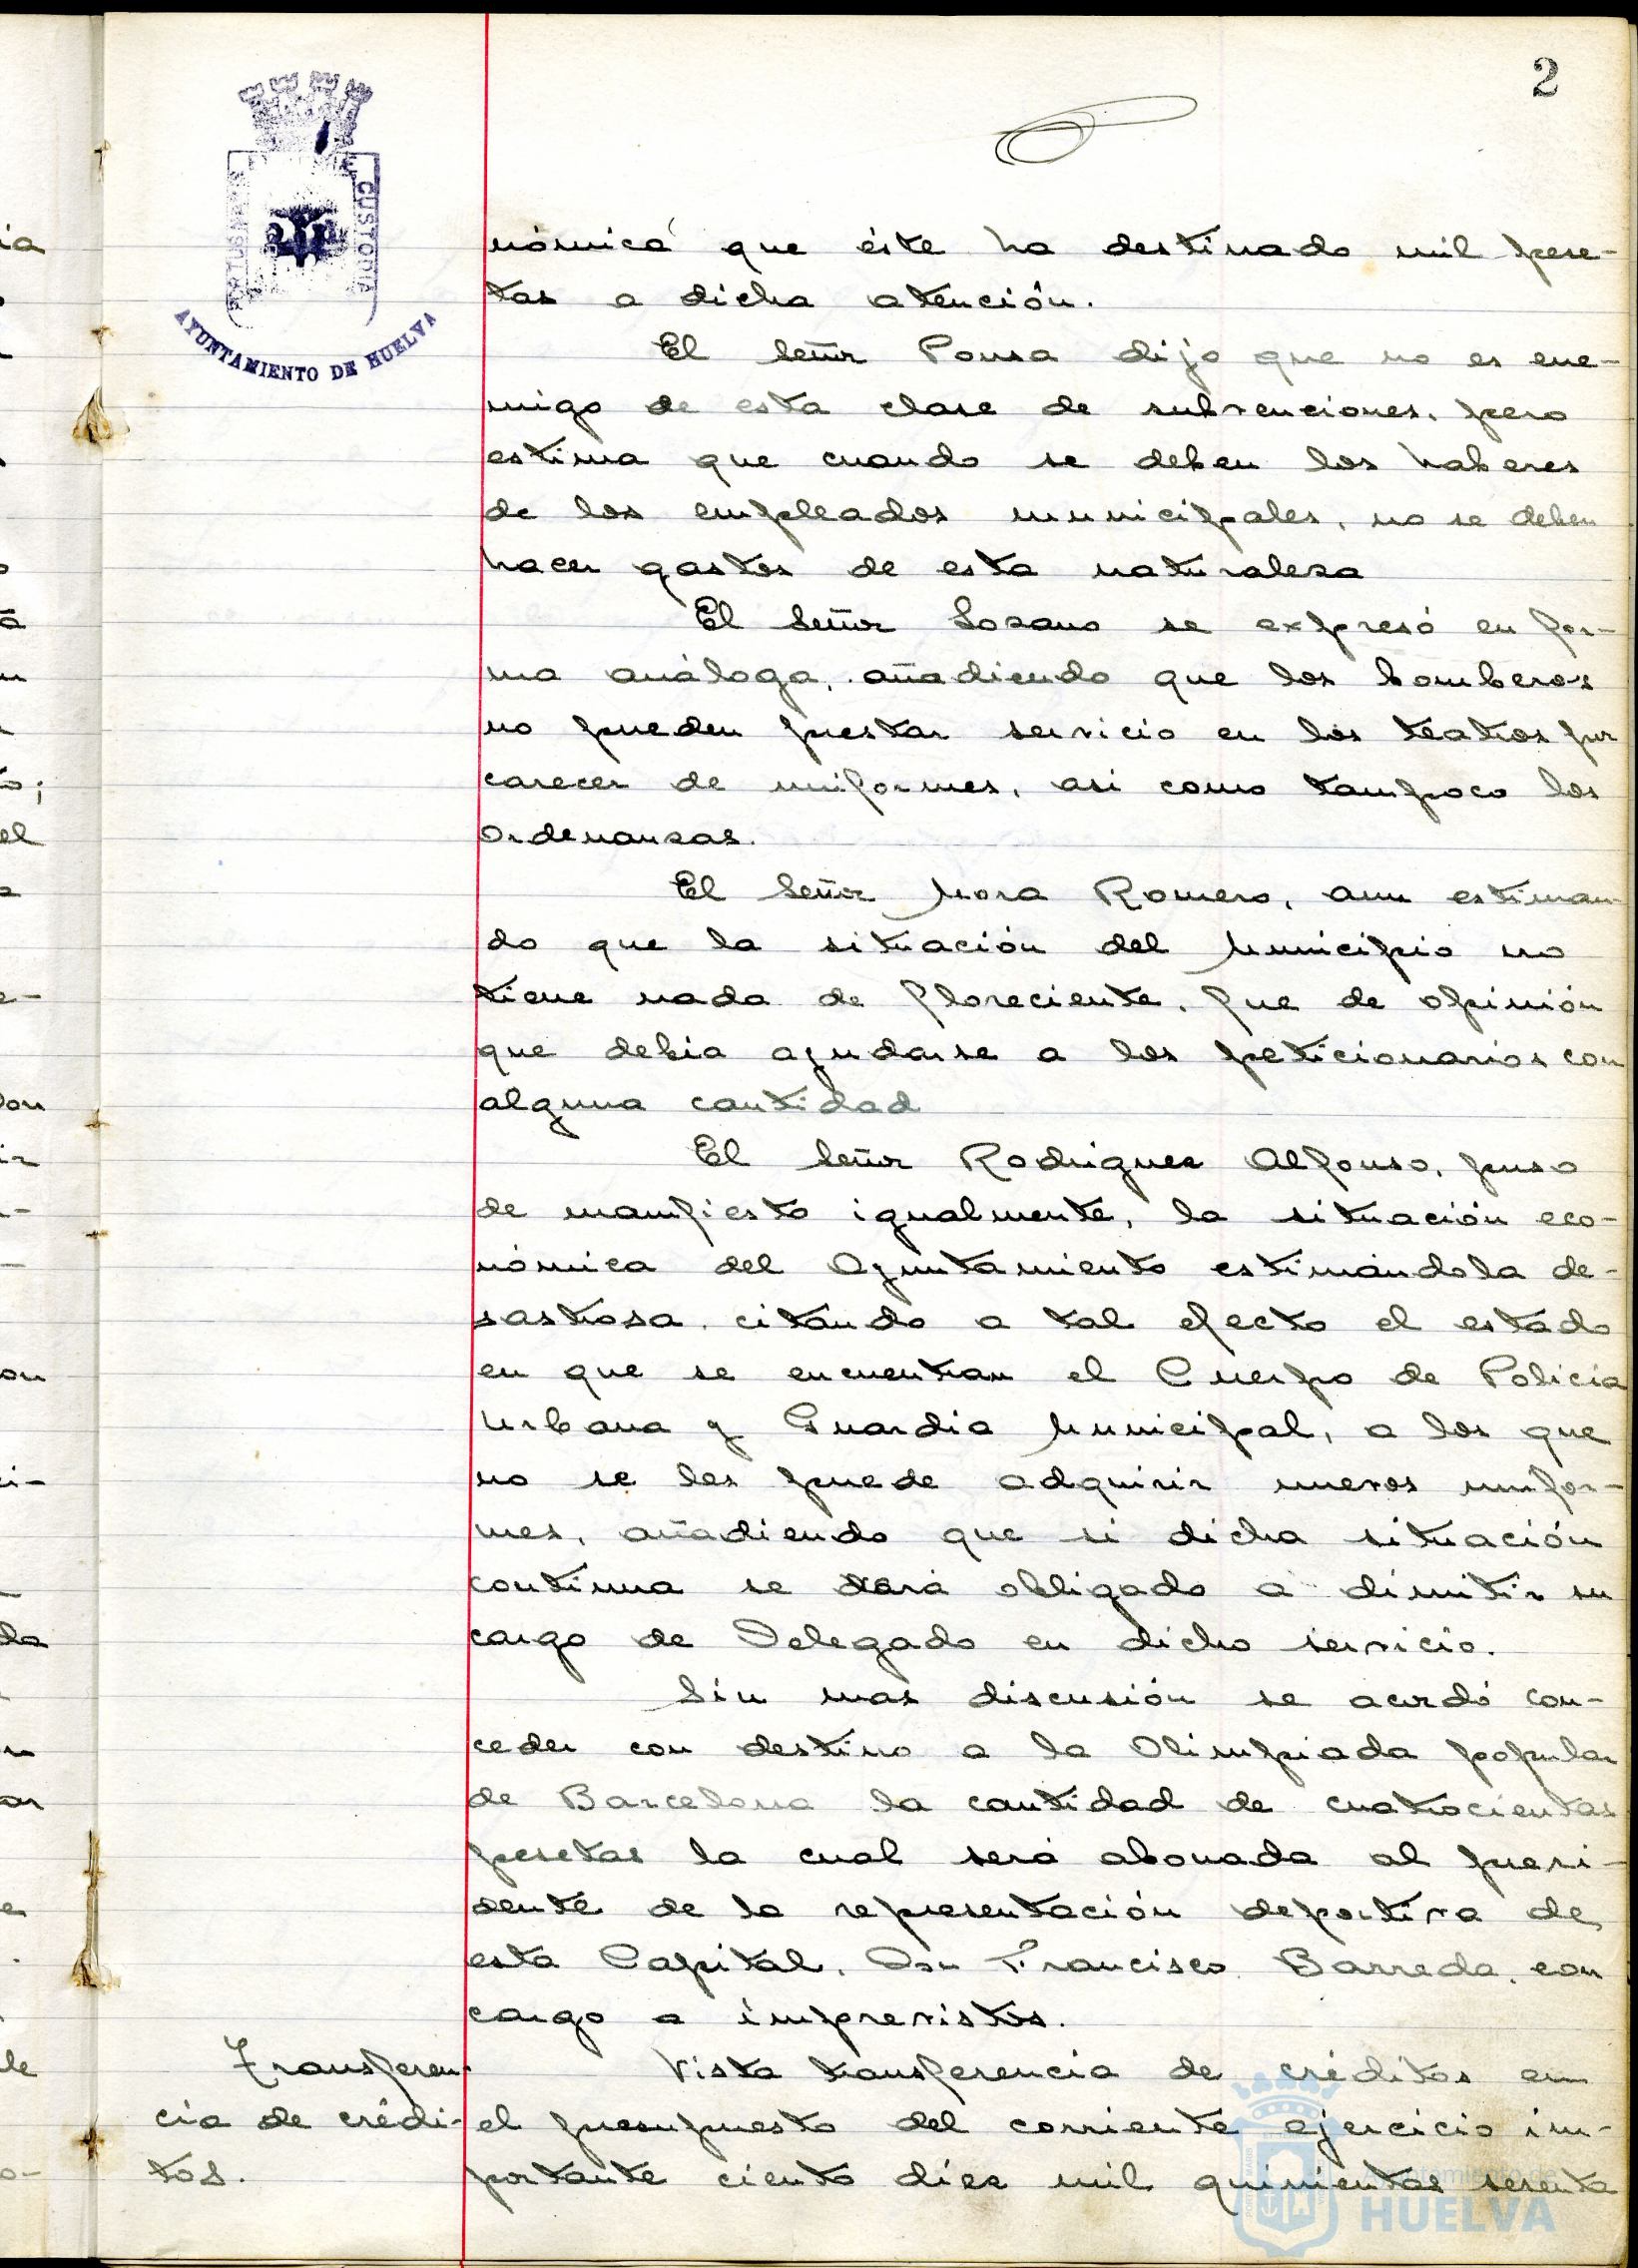 2
CUSTODIA
AYUNTAMIENTO DE HUELVA
nómica que éste ha destinado mil pese-
tas a dicha atención.
El Señor Ponsa dijo que no es ene-
migo de esta clase de subvenciones, pero
estima que cuando se deben los haberes
de los empleados municipales, no se deben
hacer gastos de esta naturaleza
El Señor Lozano se expresó en for-
ma análoga, añadiendo que los bomberos
no pueden prestar servicio en los teatros por
carecer de uniformes, asi como tampoco los
Ordenanzas.
El Señor Mora Romero, aun estiman-
do que la situación del Municipio no
tiene nada de floreciente, fue de opinión
que debia ayudarse a los peticionarios con
alguna cantidad
El Señor Rodriguez Alfonso, puso
de manifiesto igualmente, la situación eco-
nómica del Ayuntamiento estimándola de-
sastrosa, citando a tal efecto el estado
en que se encuentran el Cuerpo de Policia
Urbana y Guardia Municipal, a los que
no se les puede adquirir nuevos unifor-
mes, añadiendo que si dicha situación
continua se verá obligado a dimitir su
cargo de Delegado en dicho servicio.
Sin mas discusión se acordó con-
ceder con destino a la Olimpiada popular
de Barcelona la cantidad de cuatrocientas
pesetas la cual será abonada al presi-
dente de la representación deportiva de
esta Capital, Don Francisco Barreda, con
cargo a imprevistos.
Transferen-
cia de crédi-
tos.
Vista transferencia de créditos en
el presupuesto del corriente ejercicio im-
portante ciento diez mil quinientas sesenta
Ayuntamiento de
HUELVA